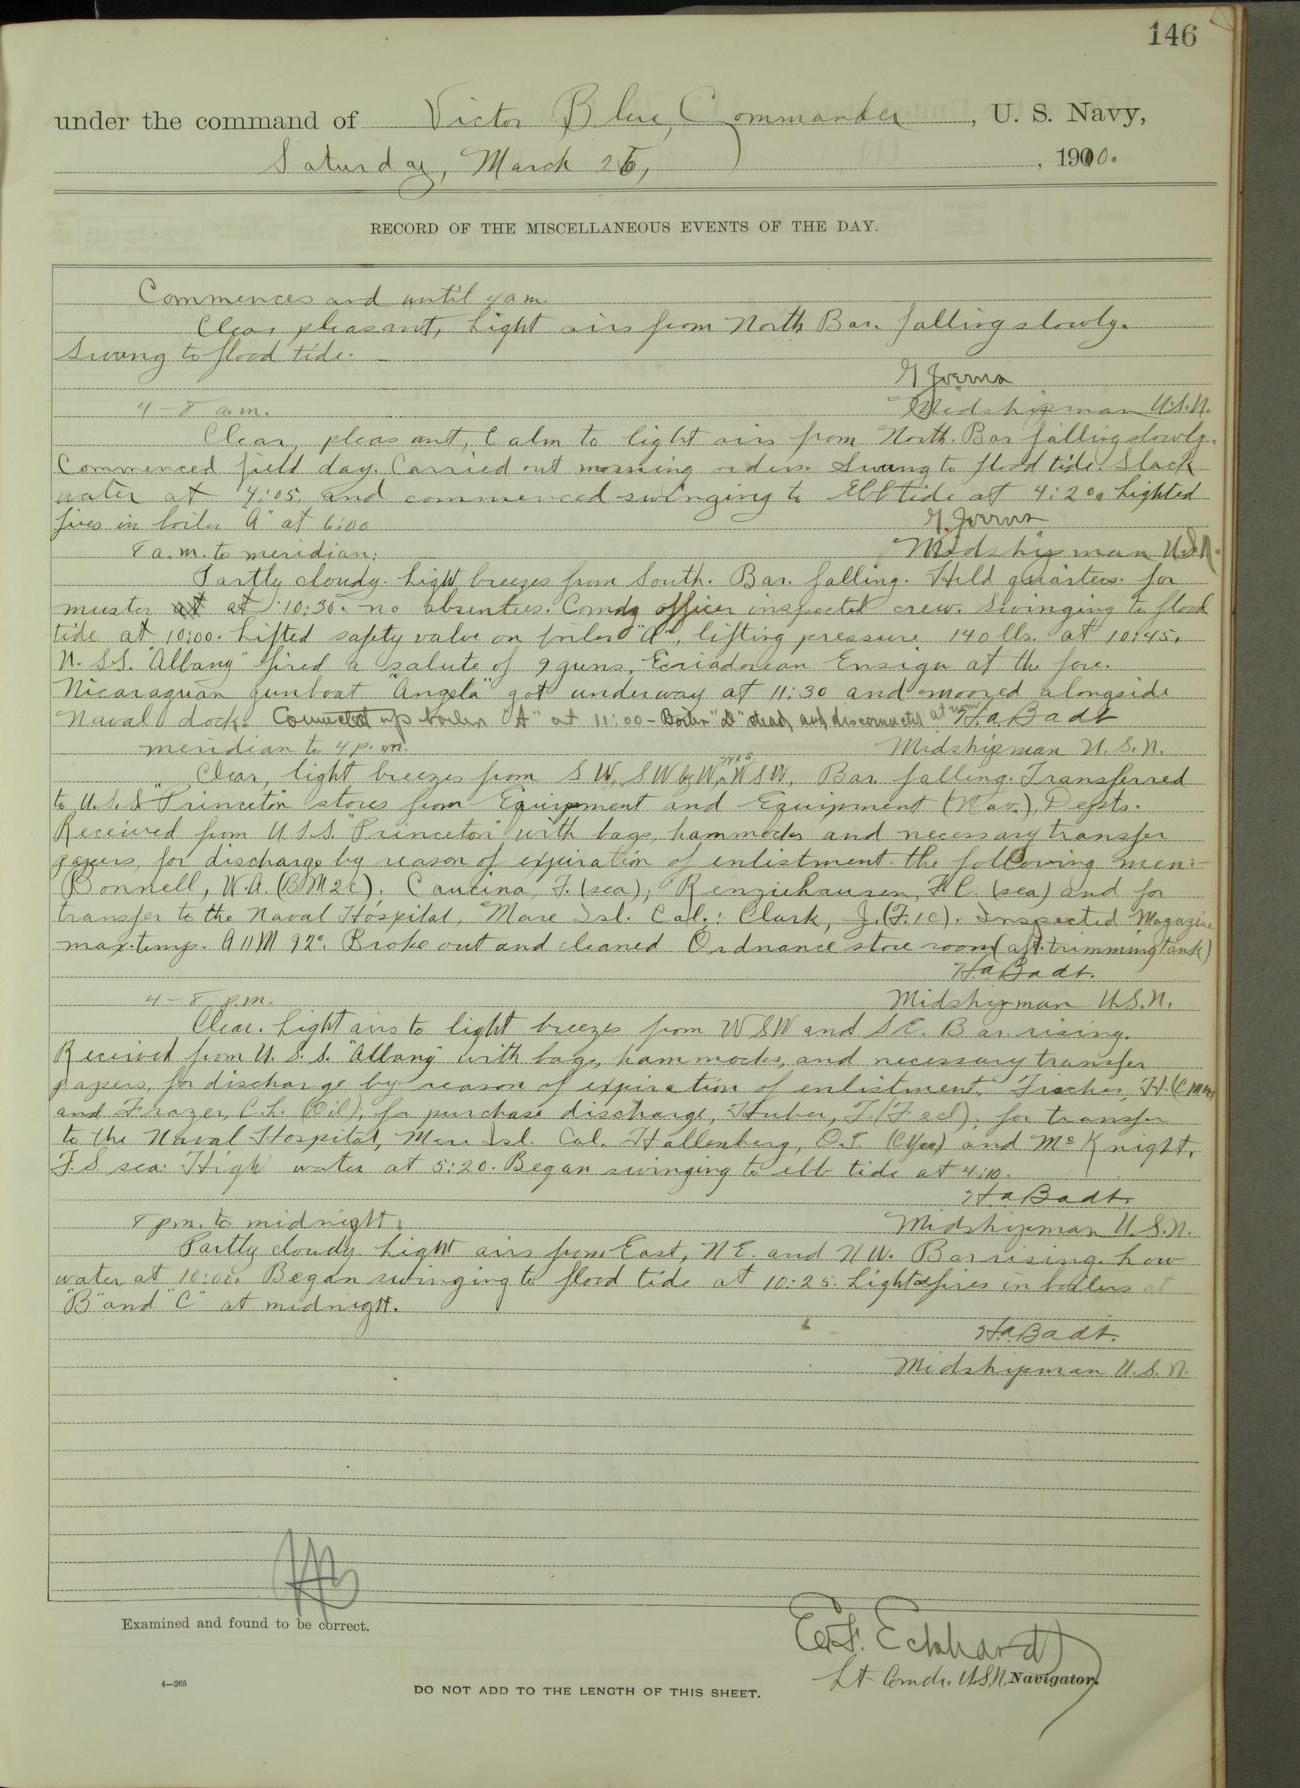 146
under the command of Victor Blue, Commander, U. S. Navy,
Saturday, March 26, 1910.
RECORD OF THE MISCELLANEOUS EVENTS OF THE DAY.
Commences and until 4 a m
Clear pleasant, Light airs from North Bar. falling slowly.
Swung to flood tide.
4 - 8 a.m.
Midshipman U.S.N.
Clear, pleasant, Calm to light airs from North. Bar falling slowly.
Commenced field day. Carried out morning orders. Swung to flood tide. Slack
water at 4:05 and commenced swinging to Ebb tide at 4:20. Lighted
fires in boiler "A" at 6:00
8 a.m. to meridian:
Midshipman U.S.N.
Partly cloudy. Light breezes from South. Bar. falling. Held quarters for
muster at at 10:30. no absentees. Comdg officer inspected crew. Swinging to flood
tide at 10:00. Lifted safety valve on boiler "A", lifting pressure 140 lbs. at 10:45.
U. S.S. "Albany" fired a salute of 9 guns, Ecuadorean Ensign at the fore.
Nicaraguan gunboat "Angela" got underway at 11:30 and moored alongside
Naval dock. Connected up boiler "A" at 11:00 - Boiler "D" dead and disconnected at noon H.A. Badt
meridian to 4 p.m.
Midshipman U.S.N.
Clear, light breezes from S W, S W by W, W S W. Bar. falling. Transferred
to U.S.S. "Princeton" stores from Equipment and Equipment (Nav.), Depts.
Received from U.S.S. "Princeton" with bags, hammocks and necessary transfer
papers, for discharge by reason of expiration of enlistment the following men:-
Bonnell, W.A. (B.M.2c). Cancina, F. (sea), Renziehausen, F.C. (sea) and for
transfer to the Naval Hospital, Mare Isl. Cal.: Clark, J. (F.1c). Inspected Magazine
max. temp. A 11 M 92°. Broke out and cleaned Ordnance store room (aft. trimming tank)
H.A. Badt.
4 - 8 p.m.
Midshipman U.S.N.
Clear. Light airs to light breezes from W S W and S.E. Bar rising.
Received from U. S. S. "Albany" with bags, hammocks, and necessary transfer
papers, for discharge by reason of expiration of enlistment, Fischer, H.
and Frazer, C.L. (Oil), for purchase discharge, Huber, T. (F2cl), for transfer
to the Naval Hospital, Mare Isl. Cal. Hallenberg, O.T. (CYeo) and McKnight,
F.S sea. High water at 5:20. Began swinging to ebb tide at 4:10.
H.A. Badt.
8 p.m. to midnight:
Midshipman U.S.N.
Partly cloudy. Light airs from East, N E. and N W. Bar rising. Low
water at 10:00. Began swinging to flood tide at 10:25. Lighted fires in boilers at
"B" and "C" at midnight.
H.A. Badt.
Midshipman U.S.N.
Examined and found to be correct.
E.F. Eckhardt
Lt Comdr. U.S.N. Navigator.
4—265
DO NOT ADD TO THE LENGTH OF THIS SHEET.